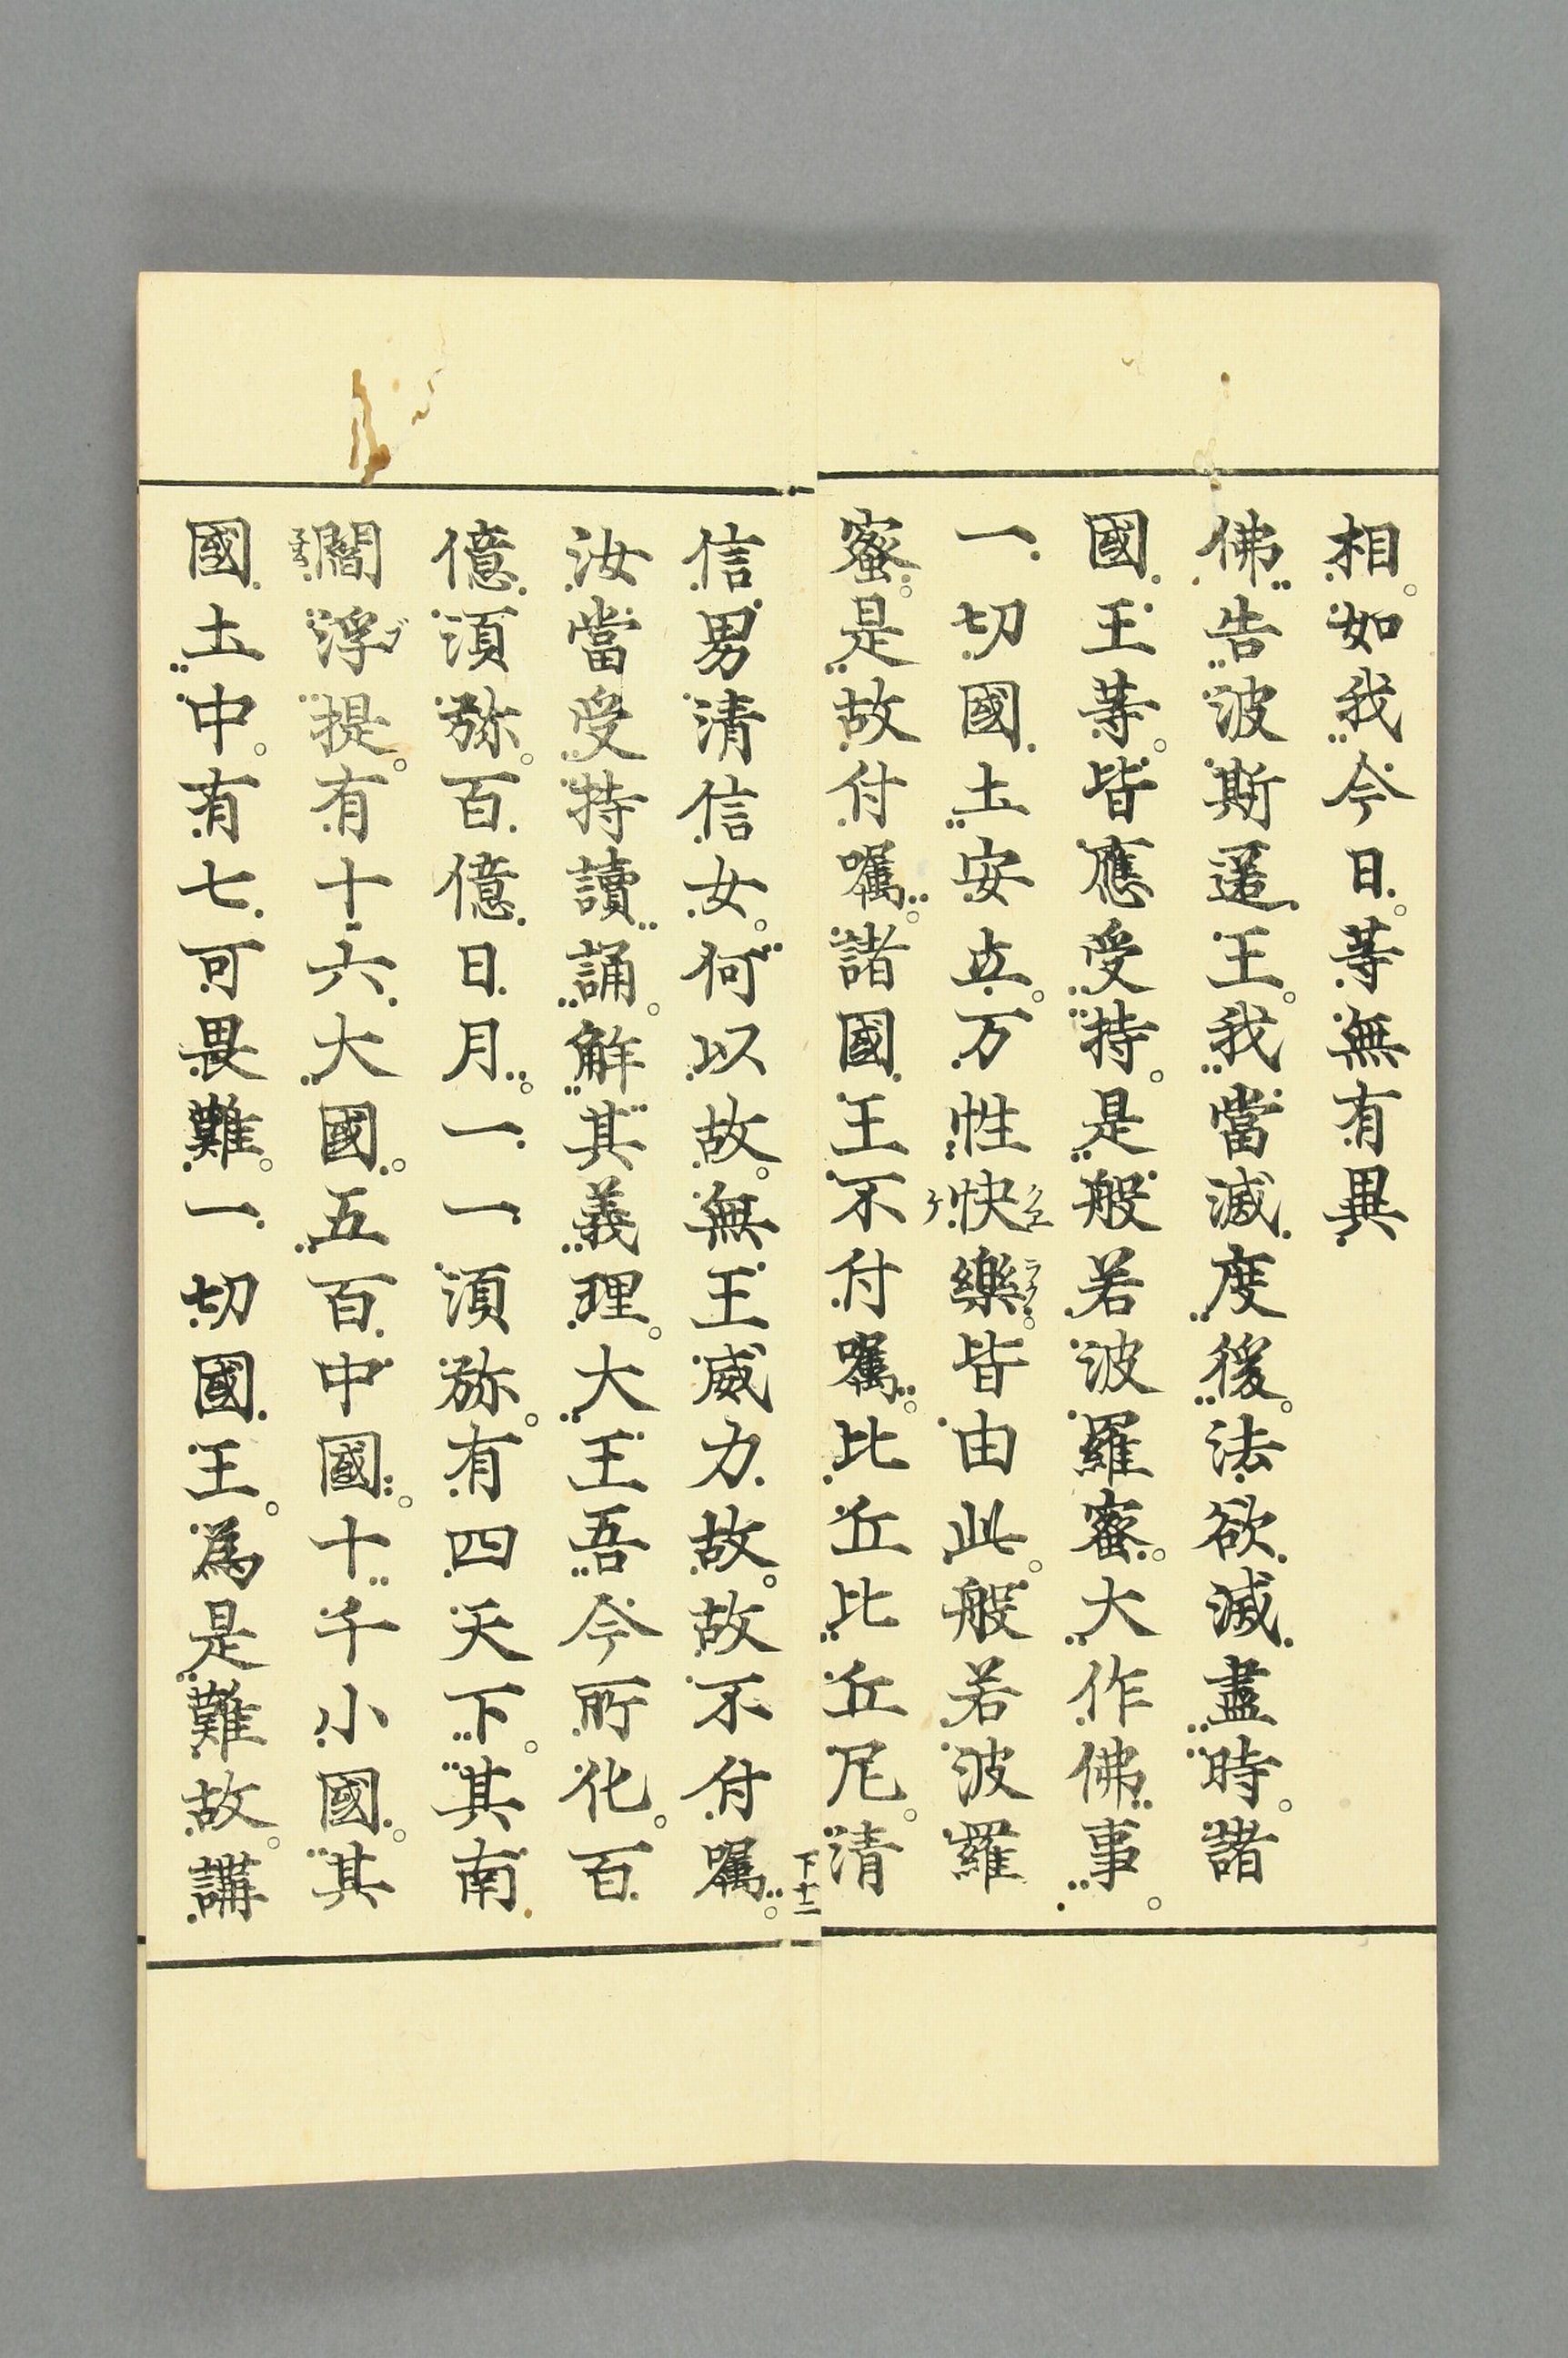 相。如我今日。等無有異
佛告波斯匿王。我當滅度後。法欲滅盡時。諸
國王等。皆應受持。是般若波羅蜜。大作佛事。
一切國土安立。万性快樂。皆由此。般若波羅
蜜。是故付嘱。諸國王不付嘱。比丘比丘尼。清
信男清信女。何以故。無王威力故。故不付嘱。
汝當受持讀誦。解其義理。大王吾今所化。百
億須弥。百億日月。一一須弥。有四天下。其南
閻浮提。有十六大國。五百中國。十千小國。其
國土中。有七可畏難。一切國王。為是難故。講
下十二